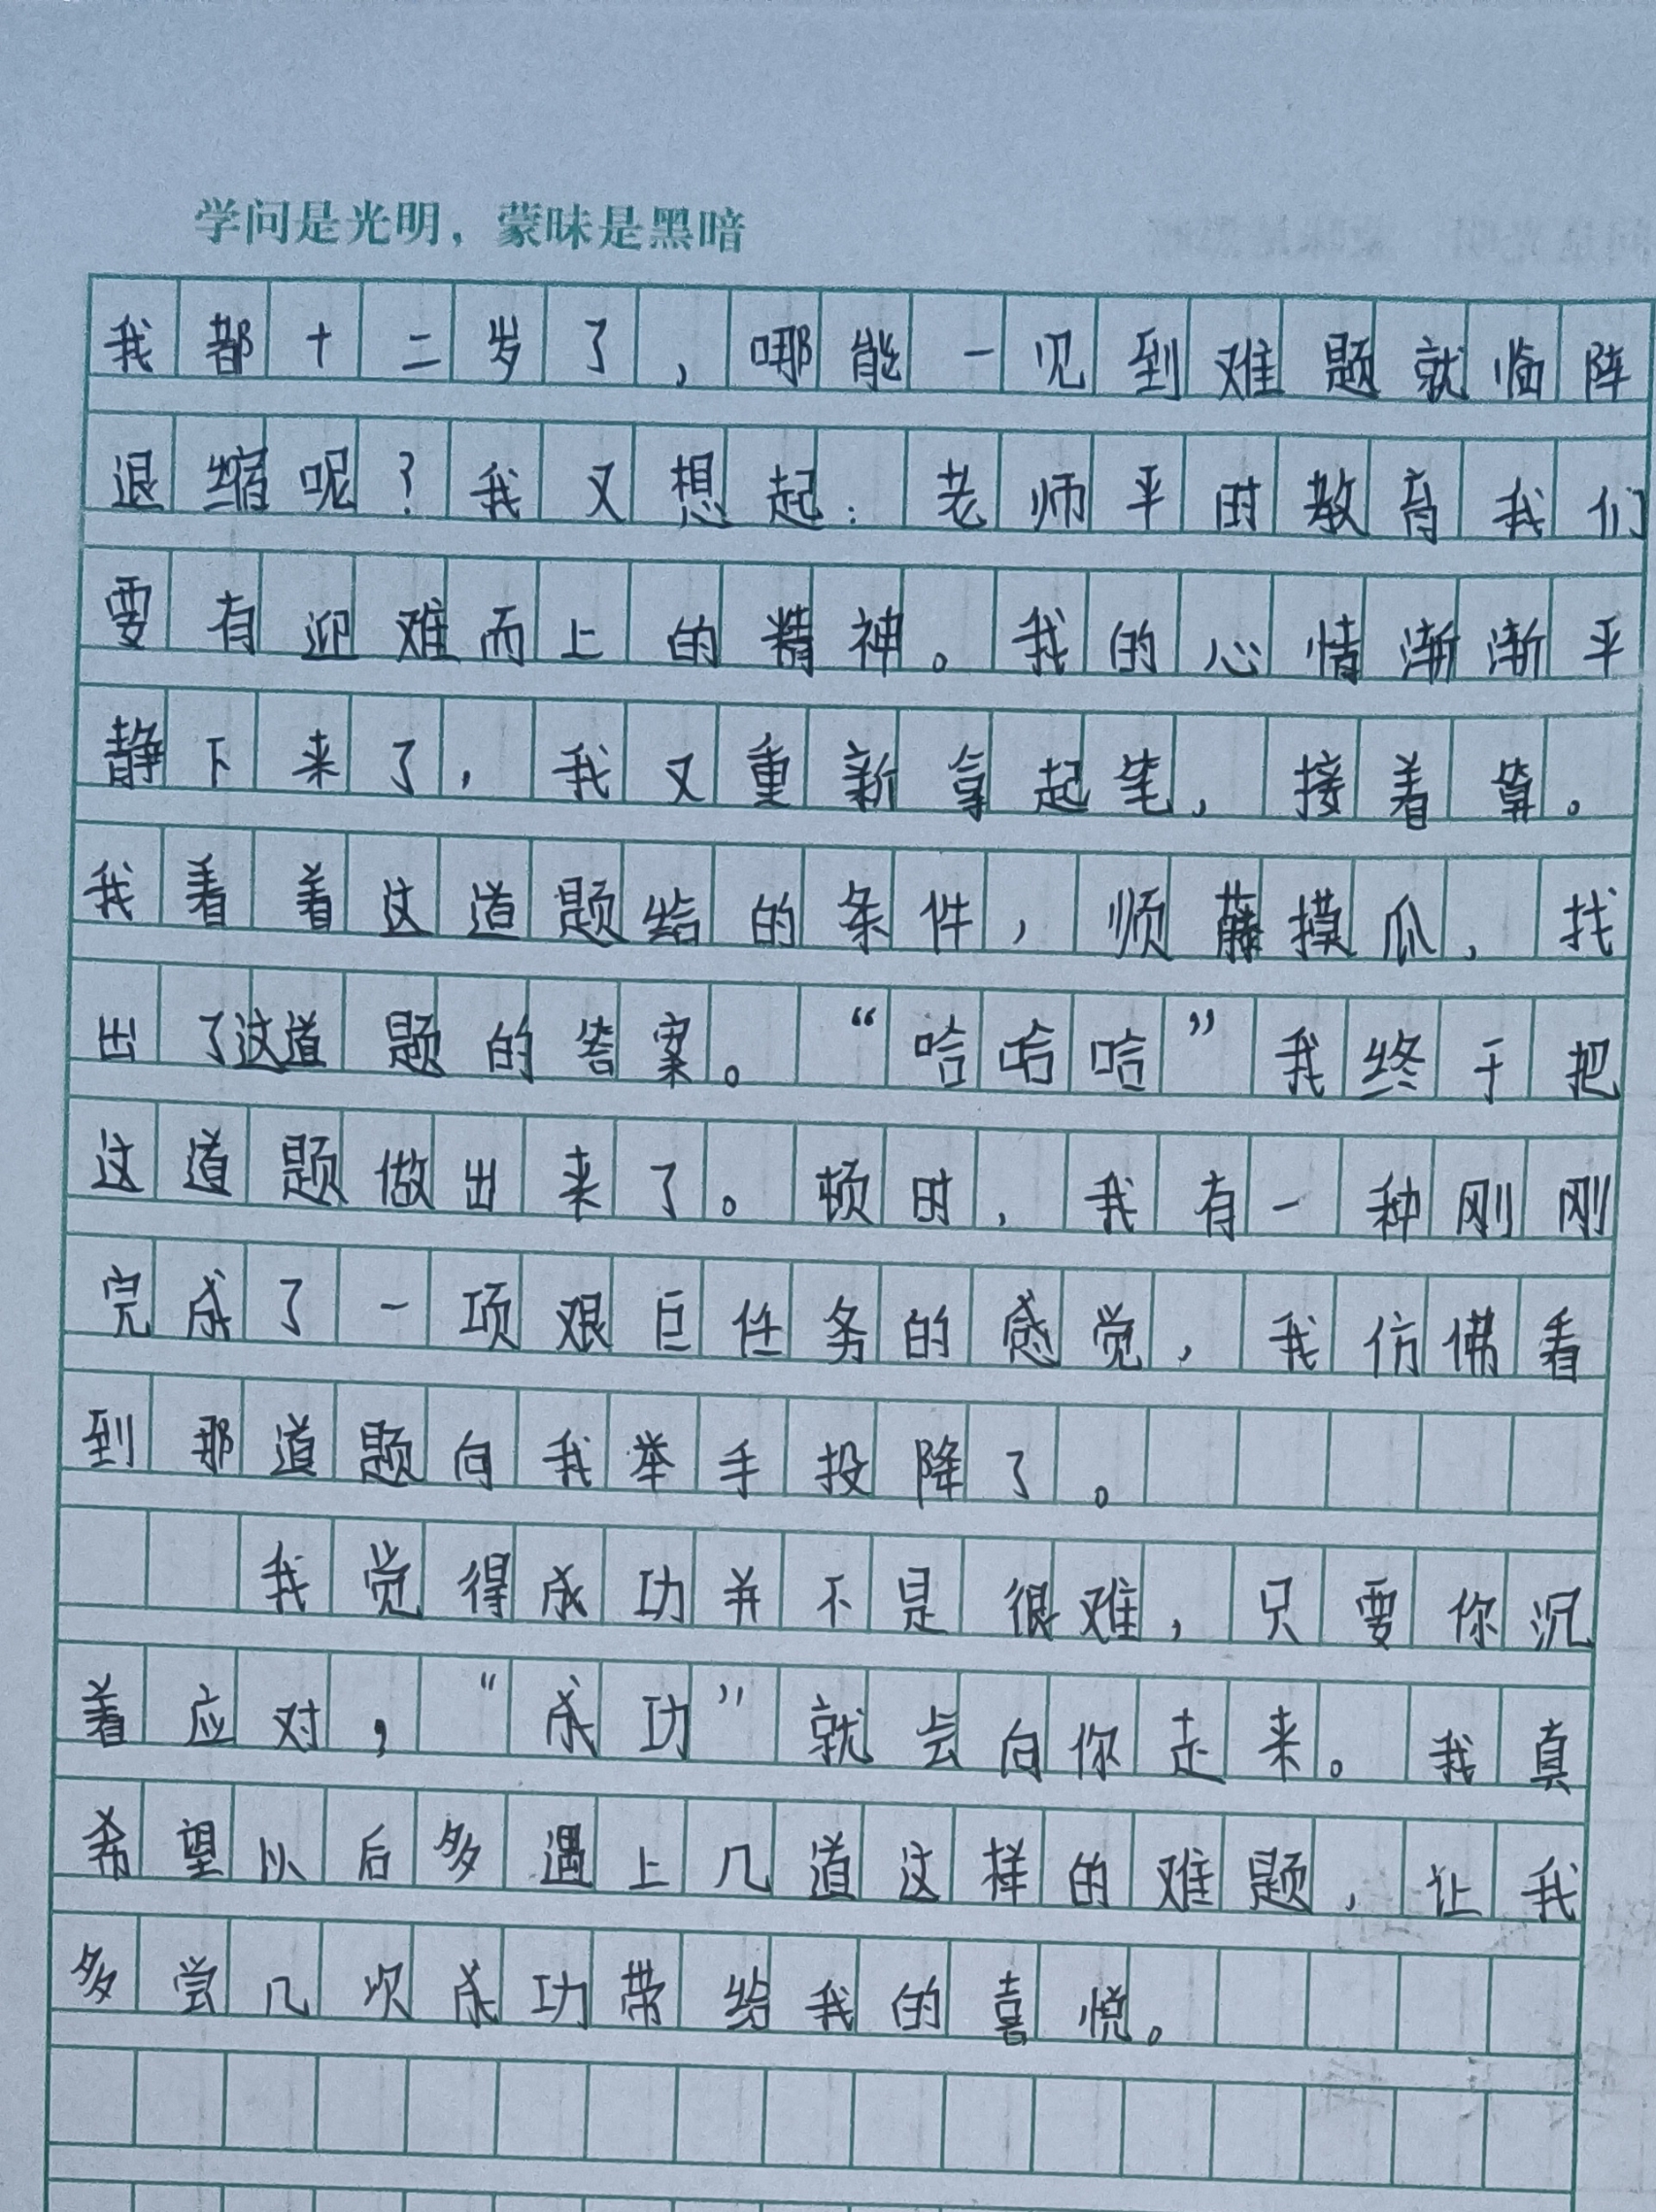 学问是光明，蒙昧是黑暗
我都十二岁了，哪能一见到难题就临阵
退缩呢？我又想起：老师平时教育我们
要有迎难而上的精神。我的心情渐渐平
静下来了，我又重新拿起笔，接着算。
我看着这道题给的条件，顺藤摸瓜，找
出了这道题的答案。“哈哈哈”我终于把
这道题做出来了。顿时，我有一种刚刚
完成了一项艰巨任务的感觉，我仿佛看
到那道题向我举手投降了。
我觉得成功并不是很难，只要你沉
着应对，“成功”就会向你走来。我真
希望以后多遇上几道这样的难题，让我
多尝几次成功带给我的喜悦。